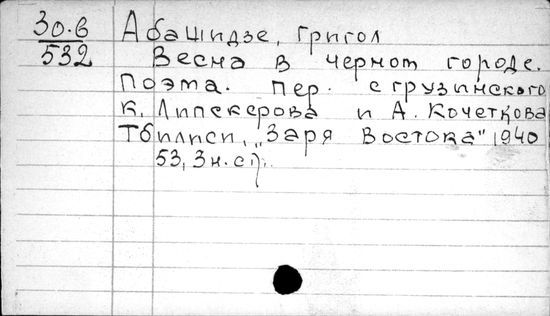 30.в
532
Абашидзе, Григол
Весна в черном городе.
Поэта. пер. с грузинского
к. Липскерова и А. Кочеткова
Тбилиси, „Заря Востока" 1940
53, 3 н. с).